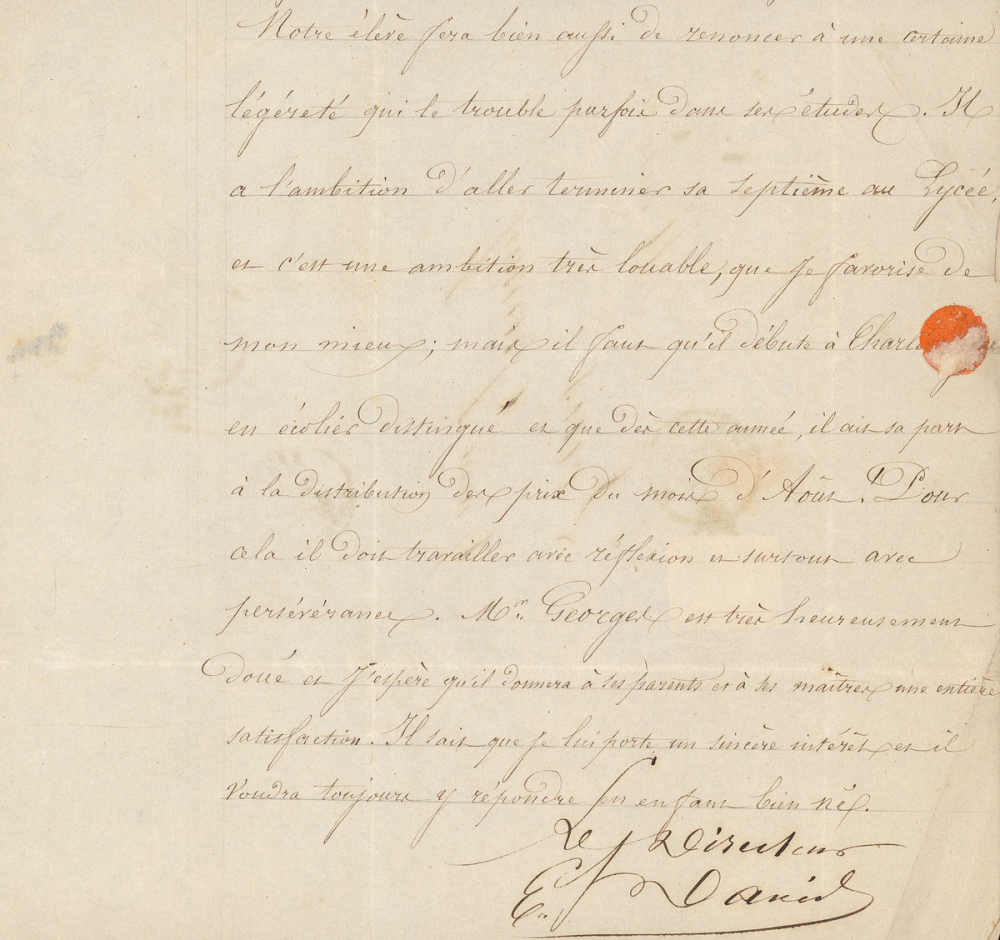 Notre élève fera bien aussi de renoncer à une certaine
légéreté qui le trouble parfois dans ses études. Il
a l'ambition d'aller terminer sa septième au Lycée,
et c'est une ambition très louable, que je favorise de
mon mieux; mais il faut qu'il débute à
en écolier distingué et que dès cette année, il ait sa part
à la distribution des prix du mois d'Août. Pour
cela il doit travailler avec réflexion et surtout avec
persévérance. Mr. Georges est très heureusement
doué et j'espère qu'il donnera à ses parents et à ses maîtres une entière
satisfaction. Il sait que je lui porte un sincère intérêt et il
voudra toujours y répondre en enfant bien né.
Le Directeur
E. David